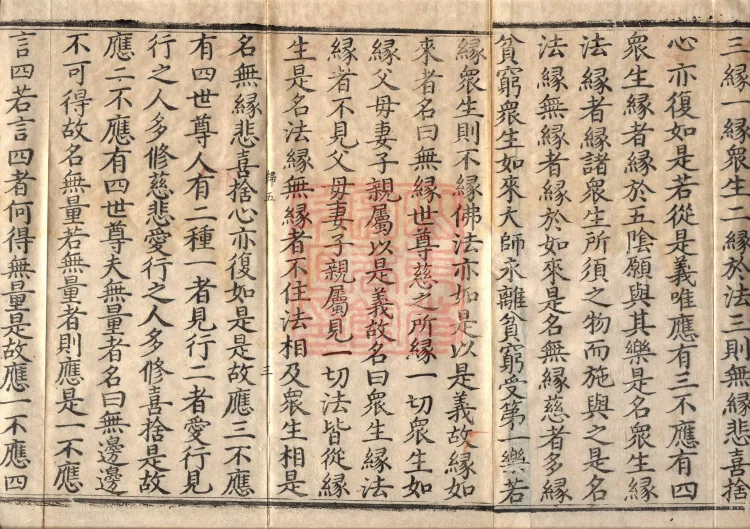 三縁一縁衆生二縁於法三則無縁悲喜捨
心亦復如是若從是義唯應有三不應有四
衆生縁者縁於五陰願與其樂是名衆生縁
法縁者縁諸衆生所須之物而施與之是名
法縁無縁者縁於如來是名無縁慈者多縁
貧窮衆生如來大師永離貧窮受第一樂若
縁衆生則不縁佛法亦如是以是義故縁如
來者名曰無縁世尊慈之所縁一切衆生如
縁父母妻子親屬以是義故名曰衆生縁法
縁者不見父母妻子親屬見一切法皆從縁
生是名法縁無縁者不住法相及衆生相是
名無縁悲喜捨心亦復如是是故應三不應
有四世尊人有二種一者見行二者愛行見
行之人多修慈悲愛行之人多修喜捨是故
應二不應有四世尊夫無量者名曰無邊邊
不可得故名無量若無量者則應是一不應
言四若言四者何得無量是故應一不應四